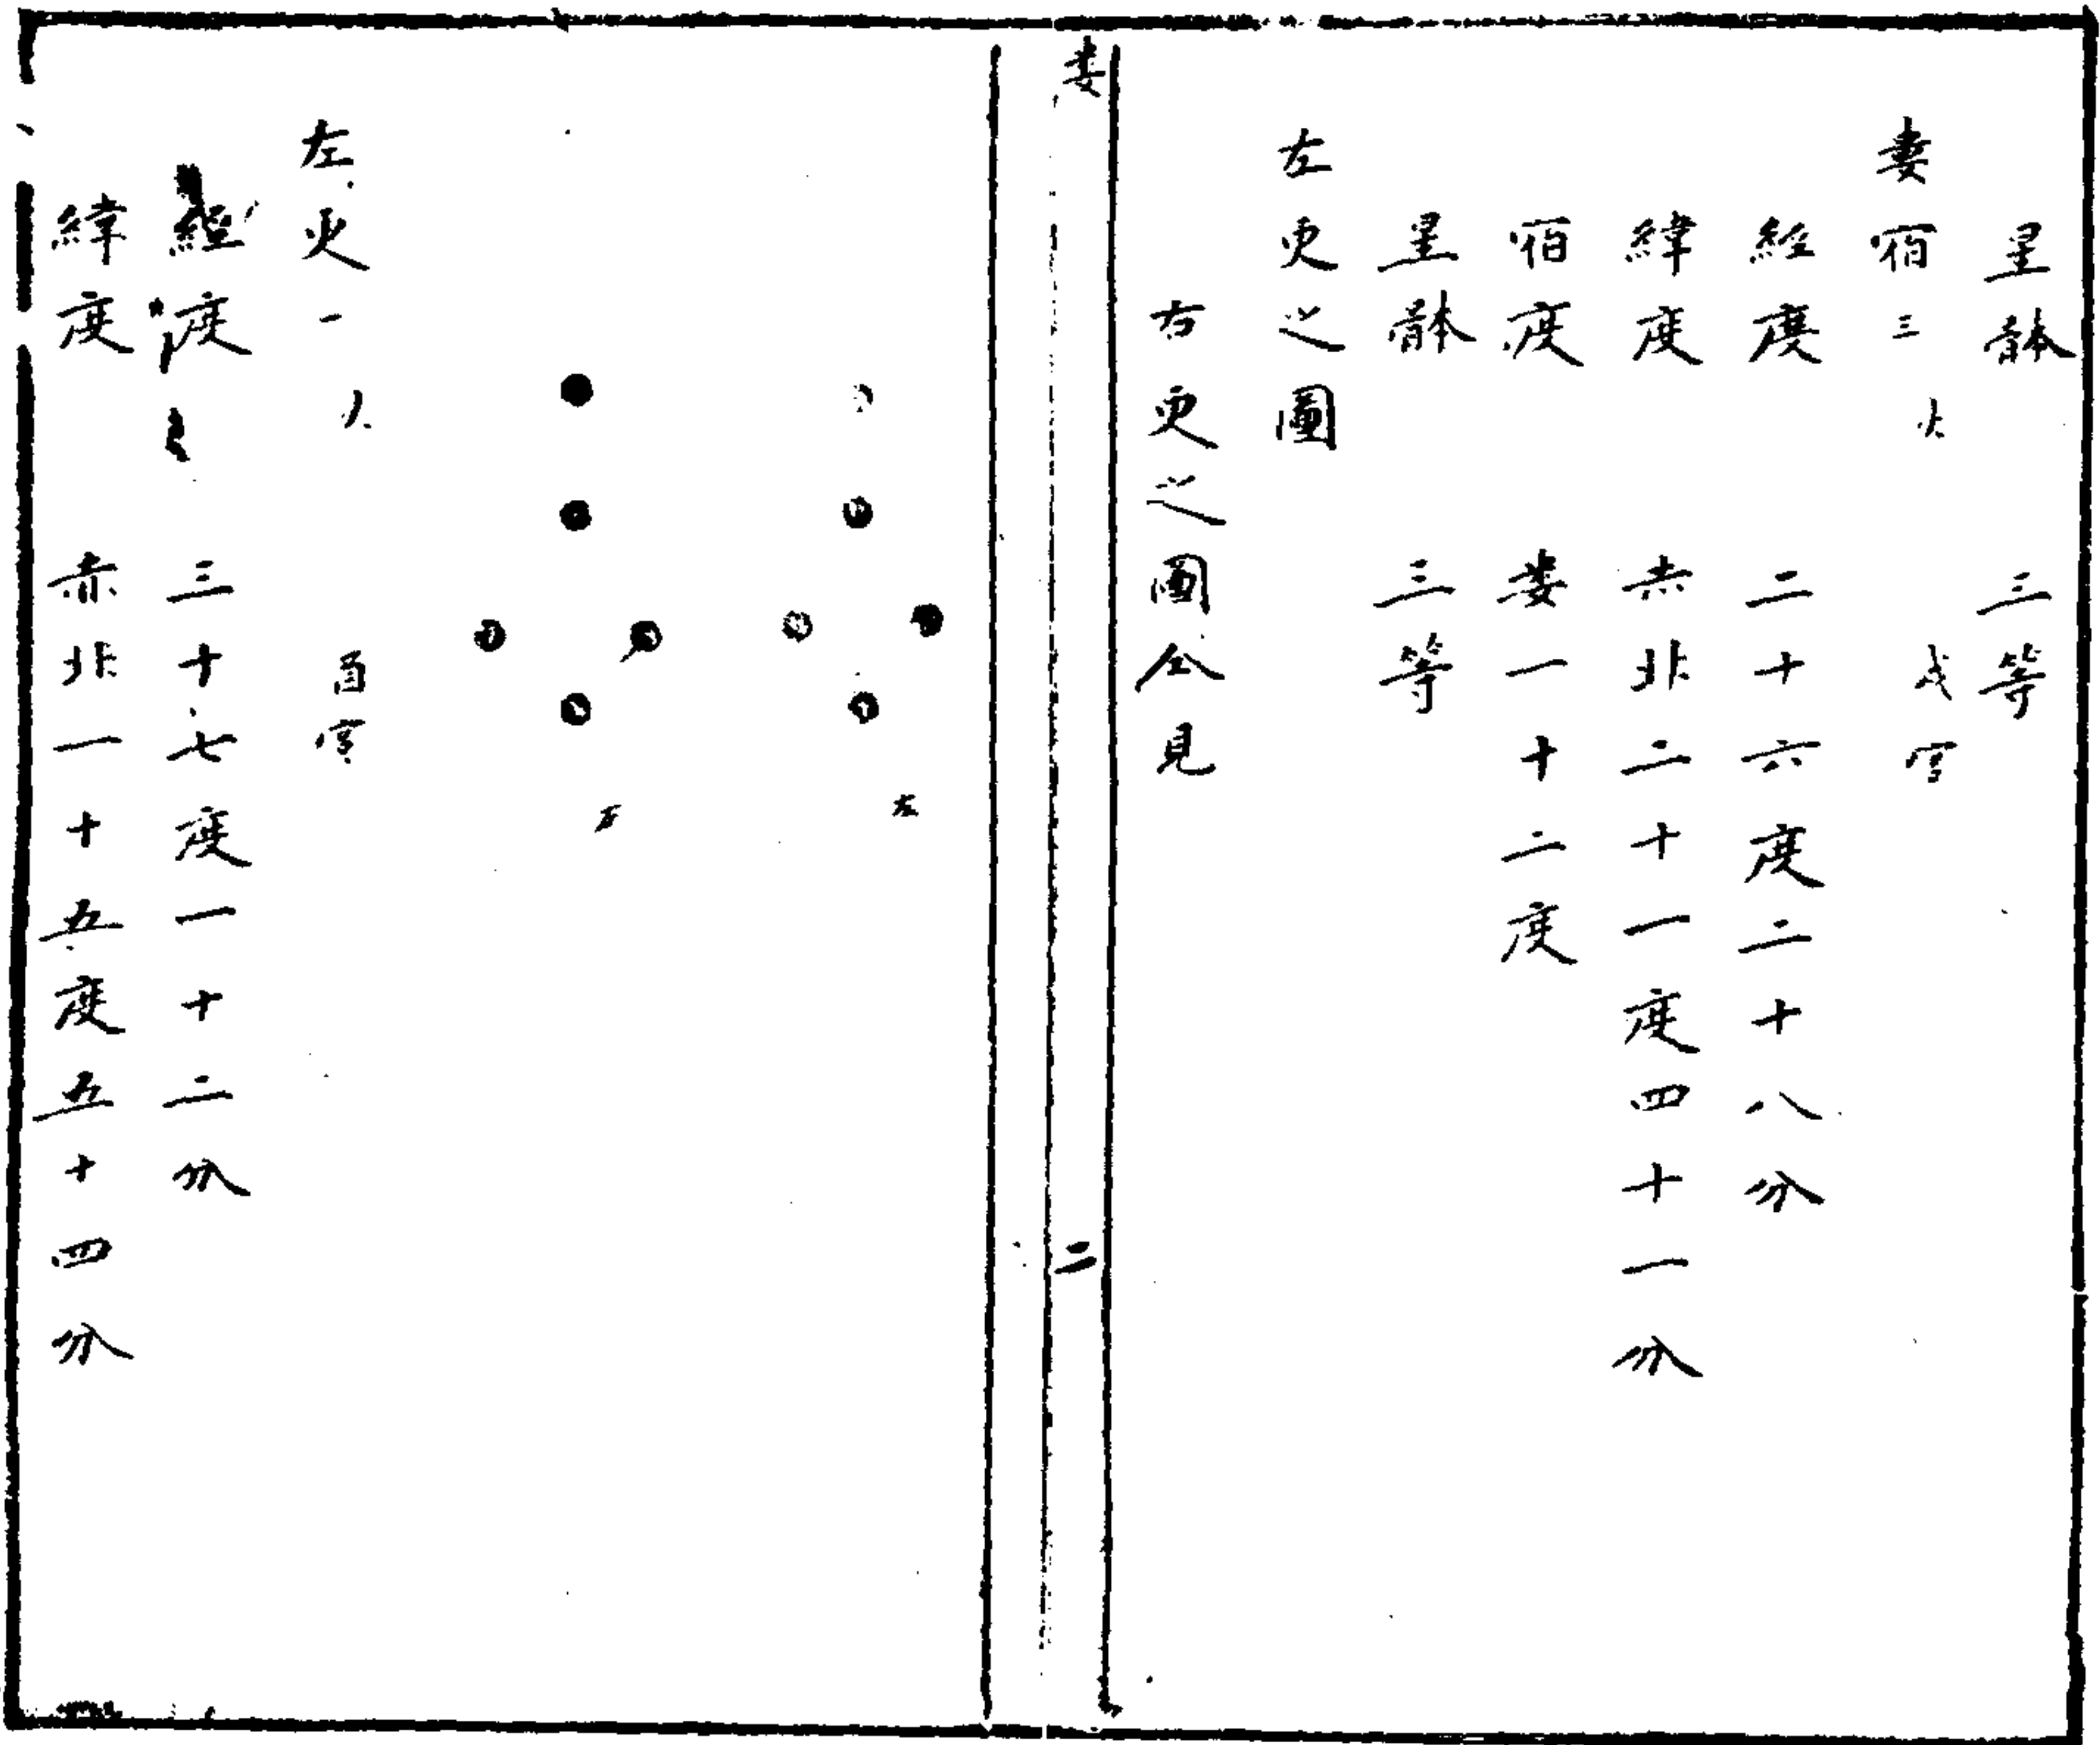 星體　三等
婁宿三　大　戌宮
經度　二十六度二十八分
緯度　赤北二十一度四十一分
宿度　婁一十二度
星體　三等
左更之圖
右更之圖仝見
婁　二
左
右
左更一　人　酉宮
經度　三十七度一十二分
緯度　赤北一十五度五十四分